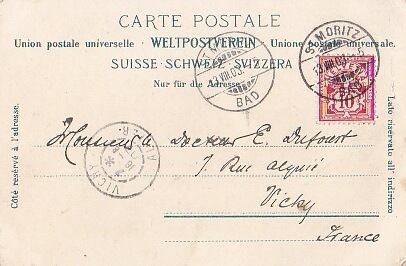 CARTE POSTALE
Union postale universelle. WELTPOSTVEREIN Unione postale universale.
SUISSE. SCHWEIZ. SVIZZERA
Nur für die Adresse.
Côté réservé à l'adresse.
Lato riservato all'indirizzo
ST. MORITZ
13 VIII 03
BAD
ST. MORITZ
13 VIII 03
BAD
10
Monsieur le Docteur E. Dufourt
7 Rue Alquié
Vichy
France
VICHY
ALLIER